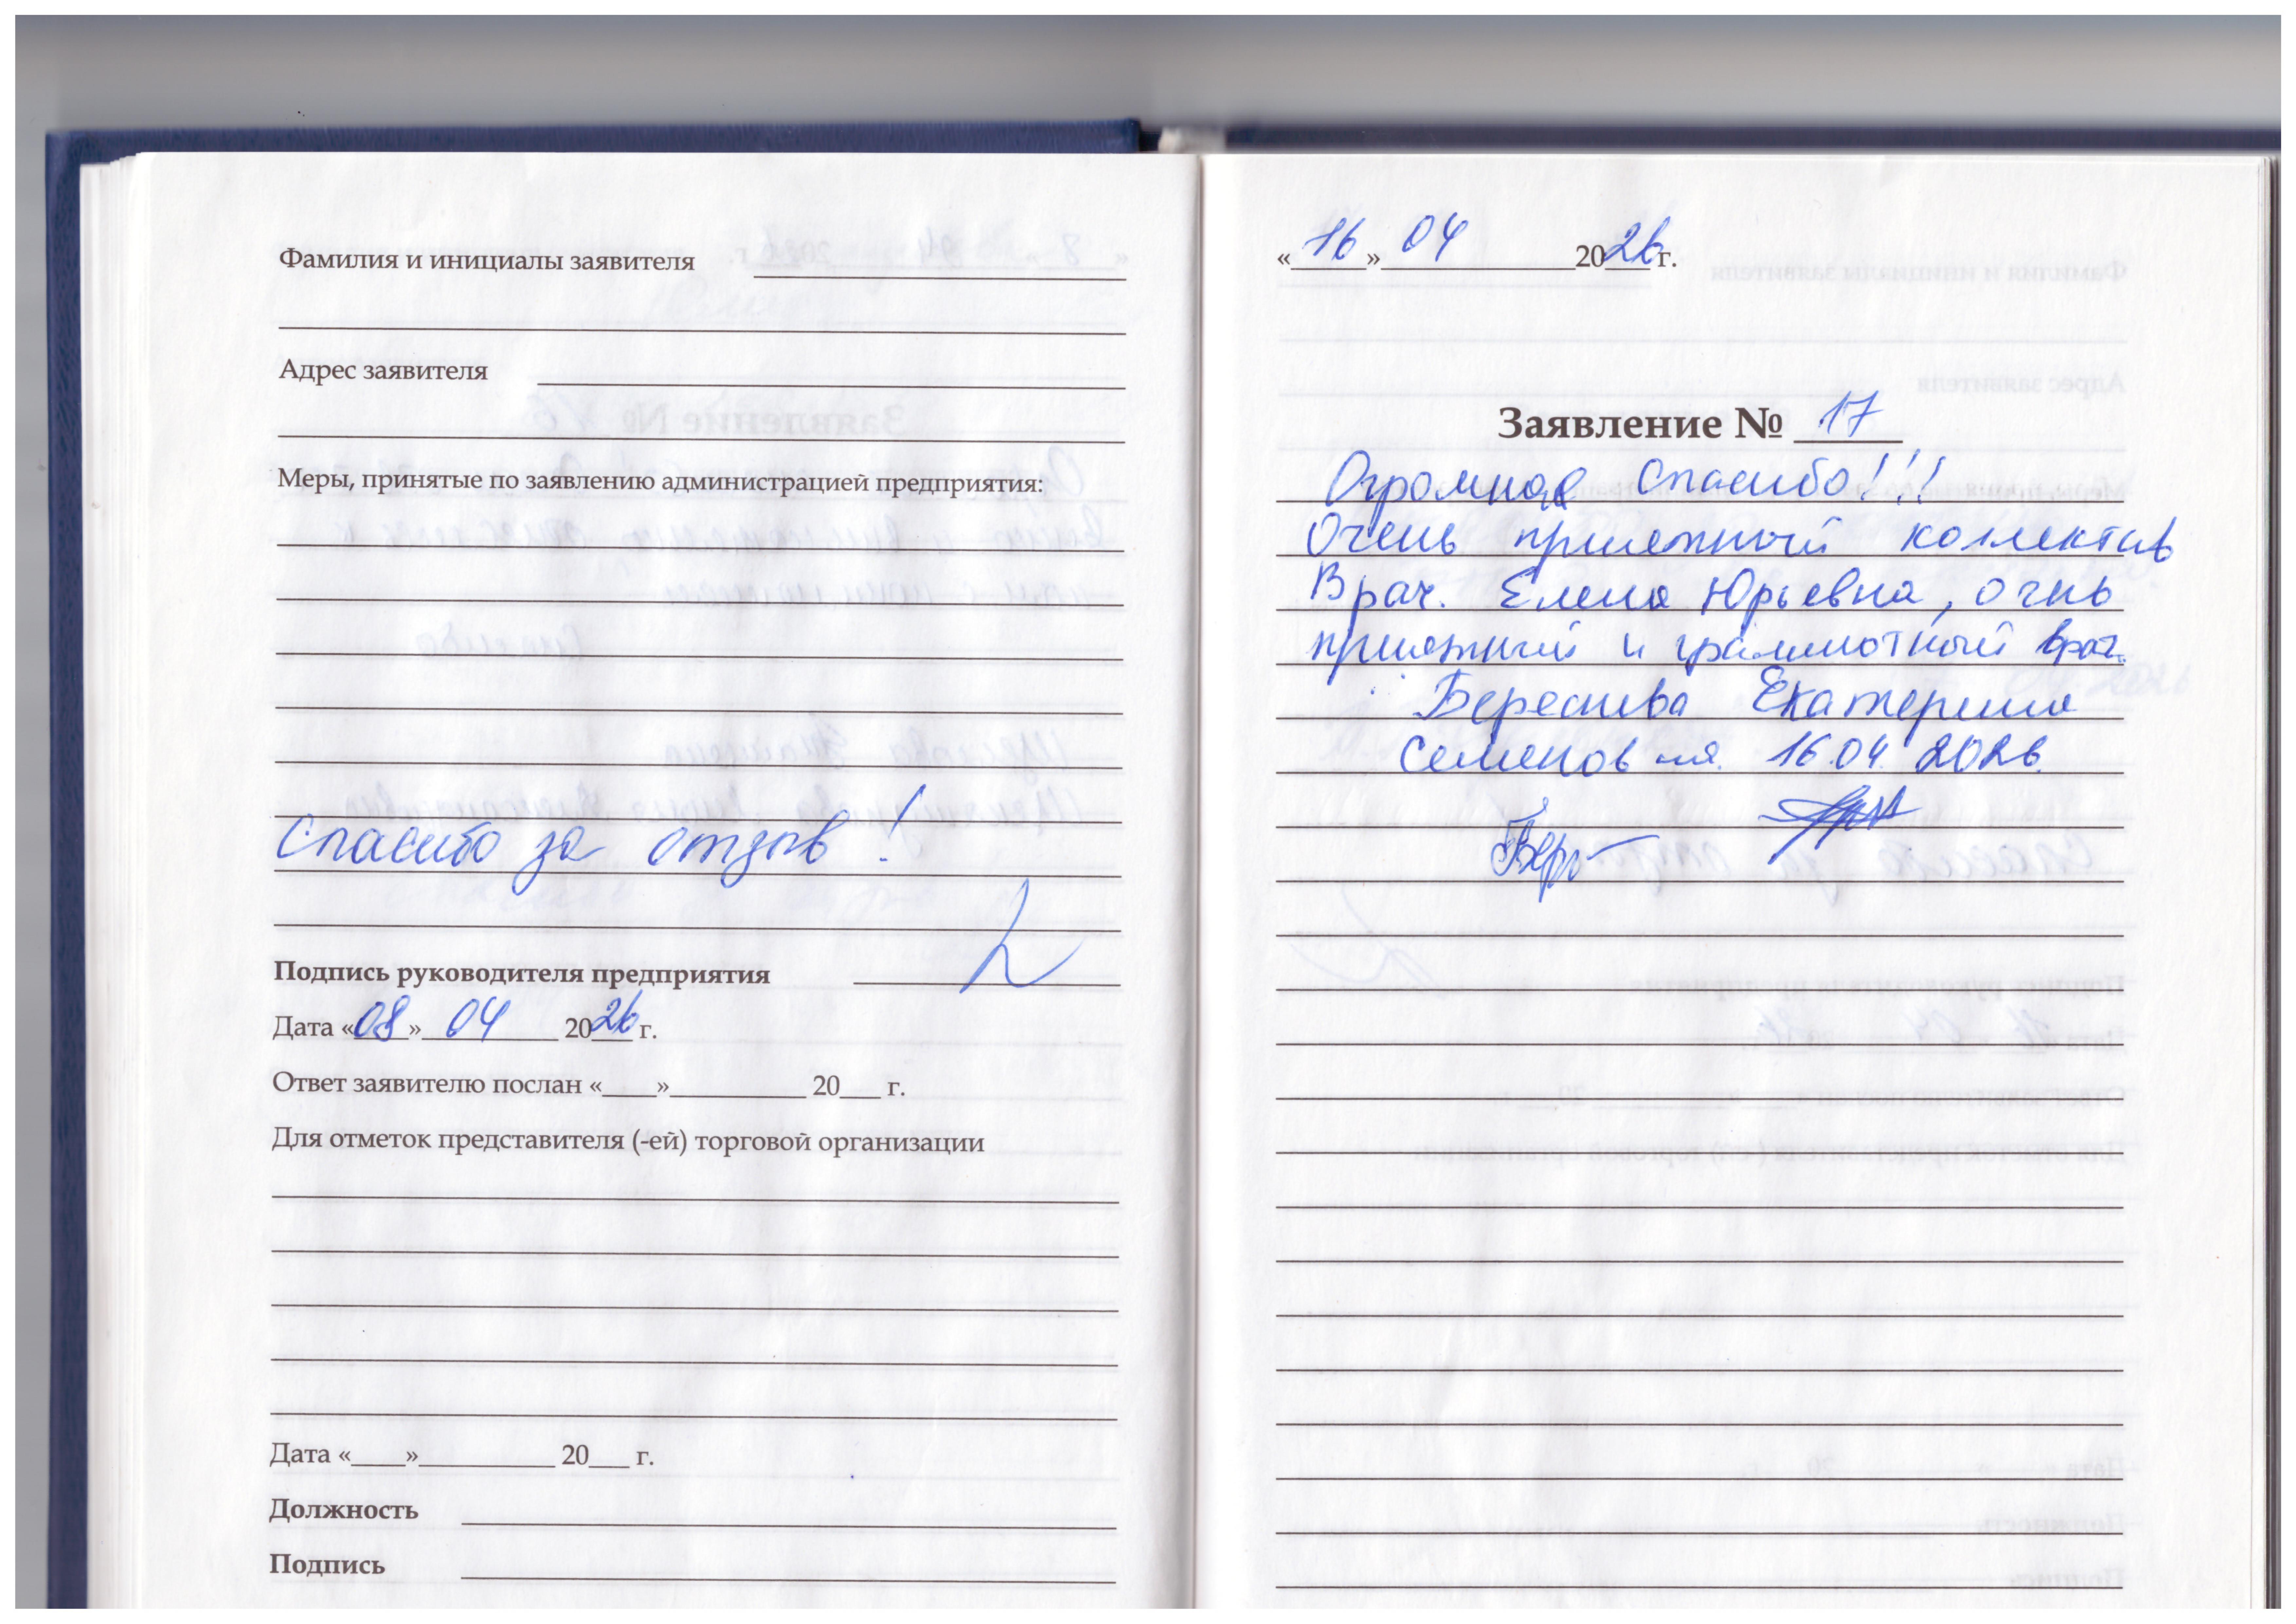 Фамилия и инициалы заявителя
Адрес заявителя
Меры, принятые по заявлению администрацией предприятия:
Спасибо за отзыв!
Подпись руководителя предприятия
Дата «08» 04 2026 г.
Ответ заявителю послан «____»__________ 20___ г.
Для отметок представителя (-ей) торговой организации
Дата «____»__________ 20___ г.
Должность
Подпись
«16» 04 2026 г.
Заявление № 17
Огромная спасибо!!!
Очень приятный коллектив
Врач. Елена Юрьевна, очнь
приятный и граммотный врач.
Береснева Екатерина
Семеновна. 16.04. 2026.